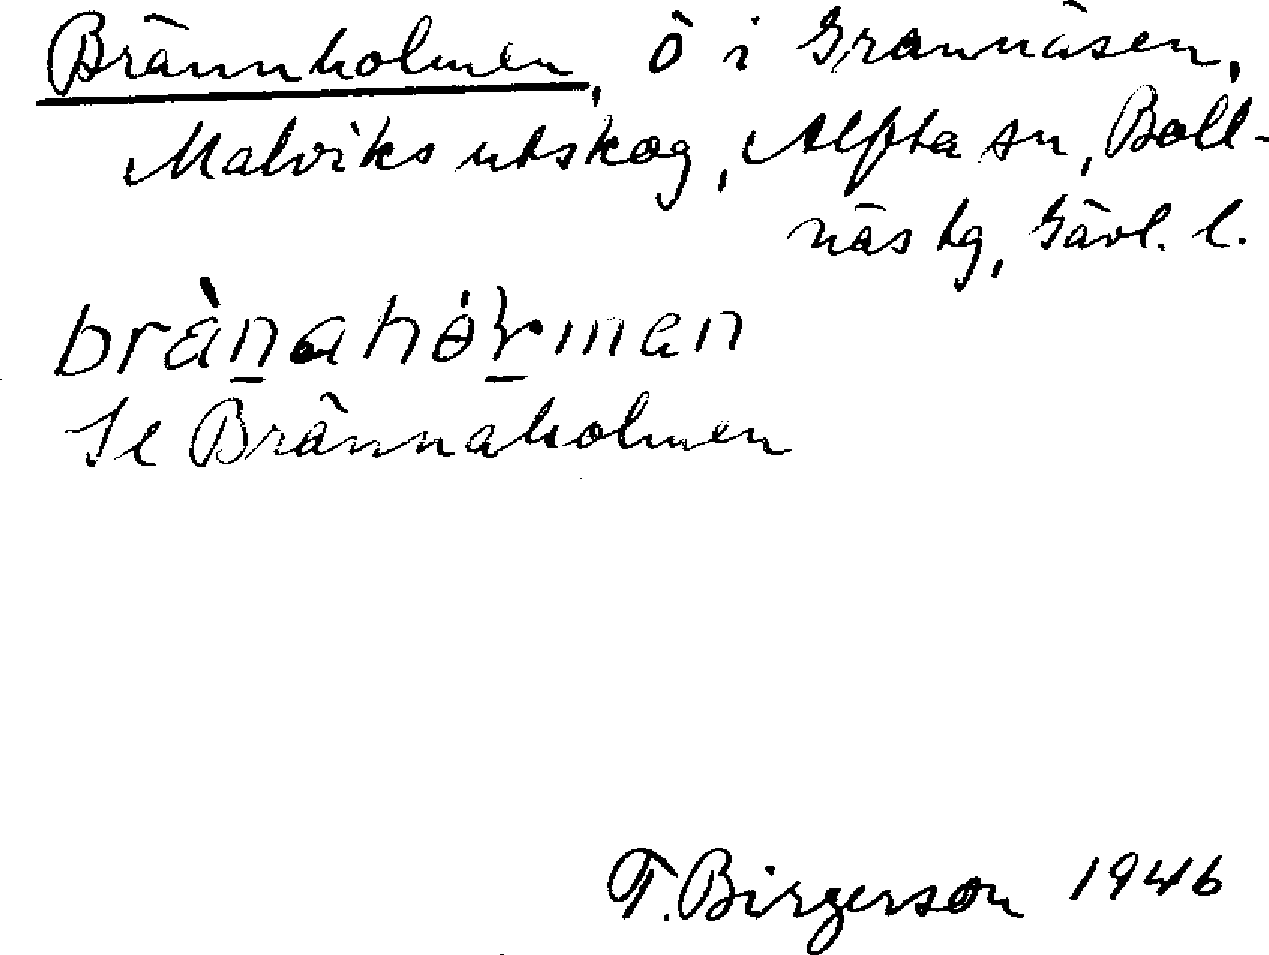 Brännholmen, ö i Grannäsen,
Malviks utskog, Alfta sn, Boll-
näs tg, Gävl. l.
Se Brännaholmen
T. Birgerson 1946